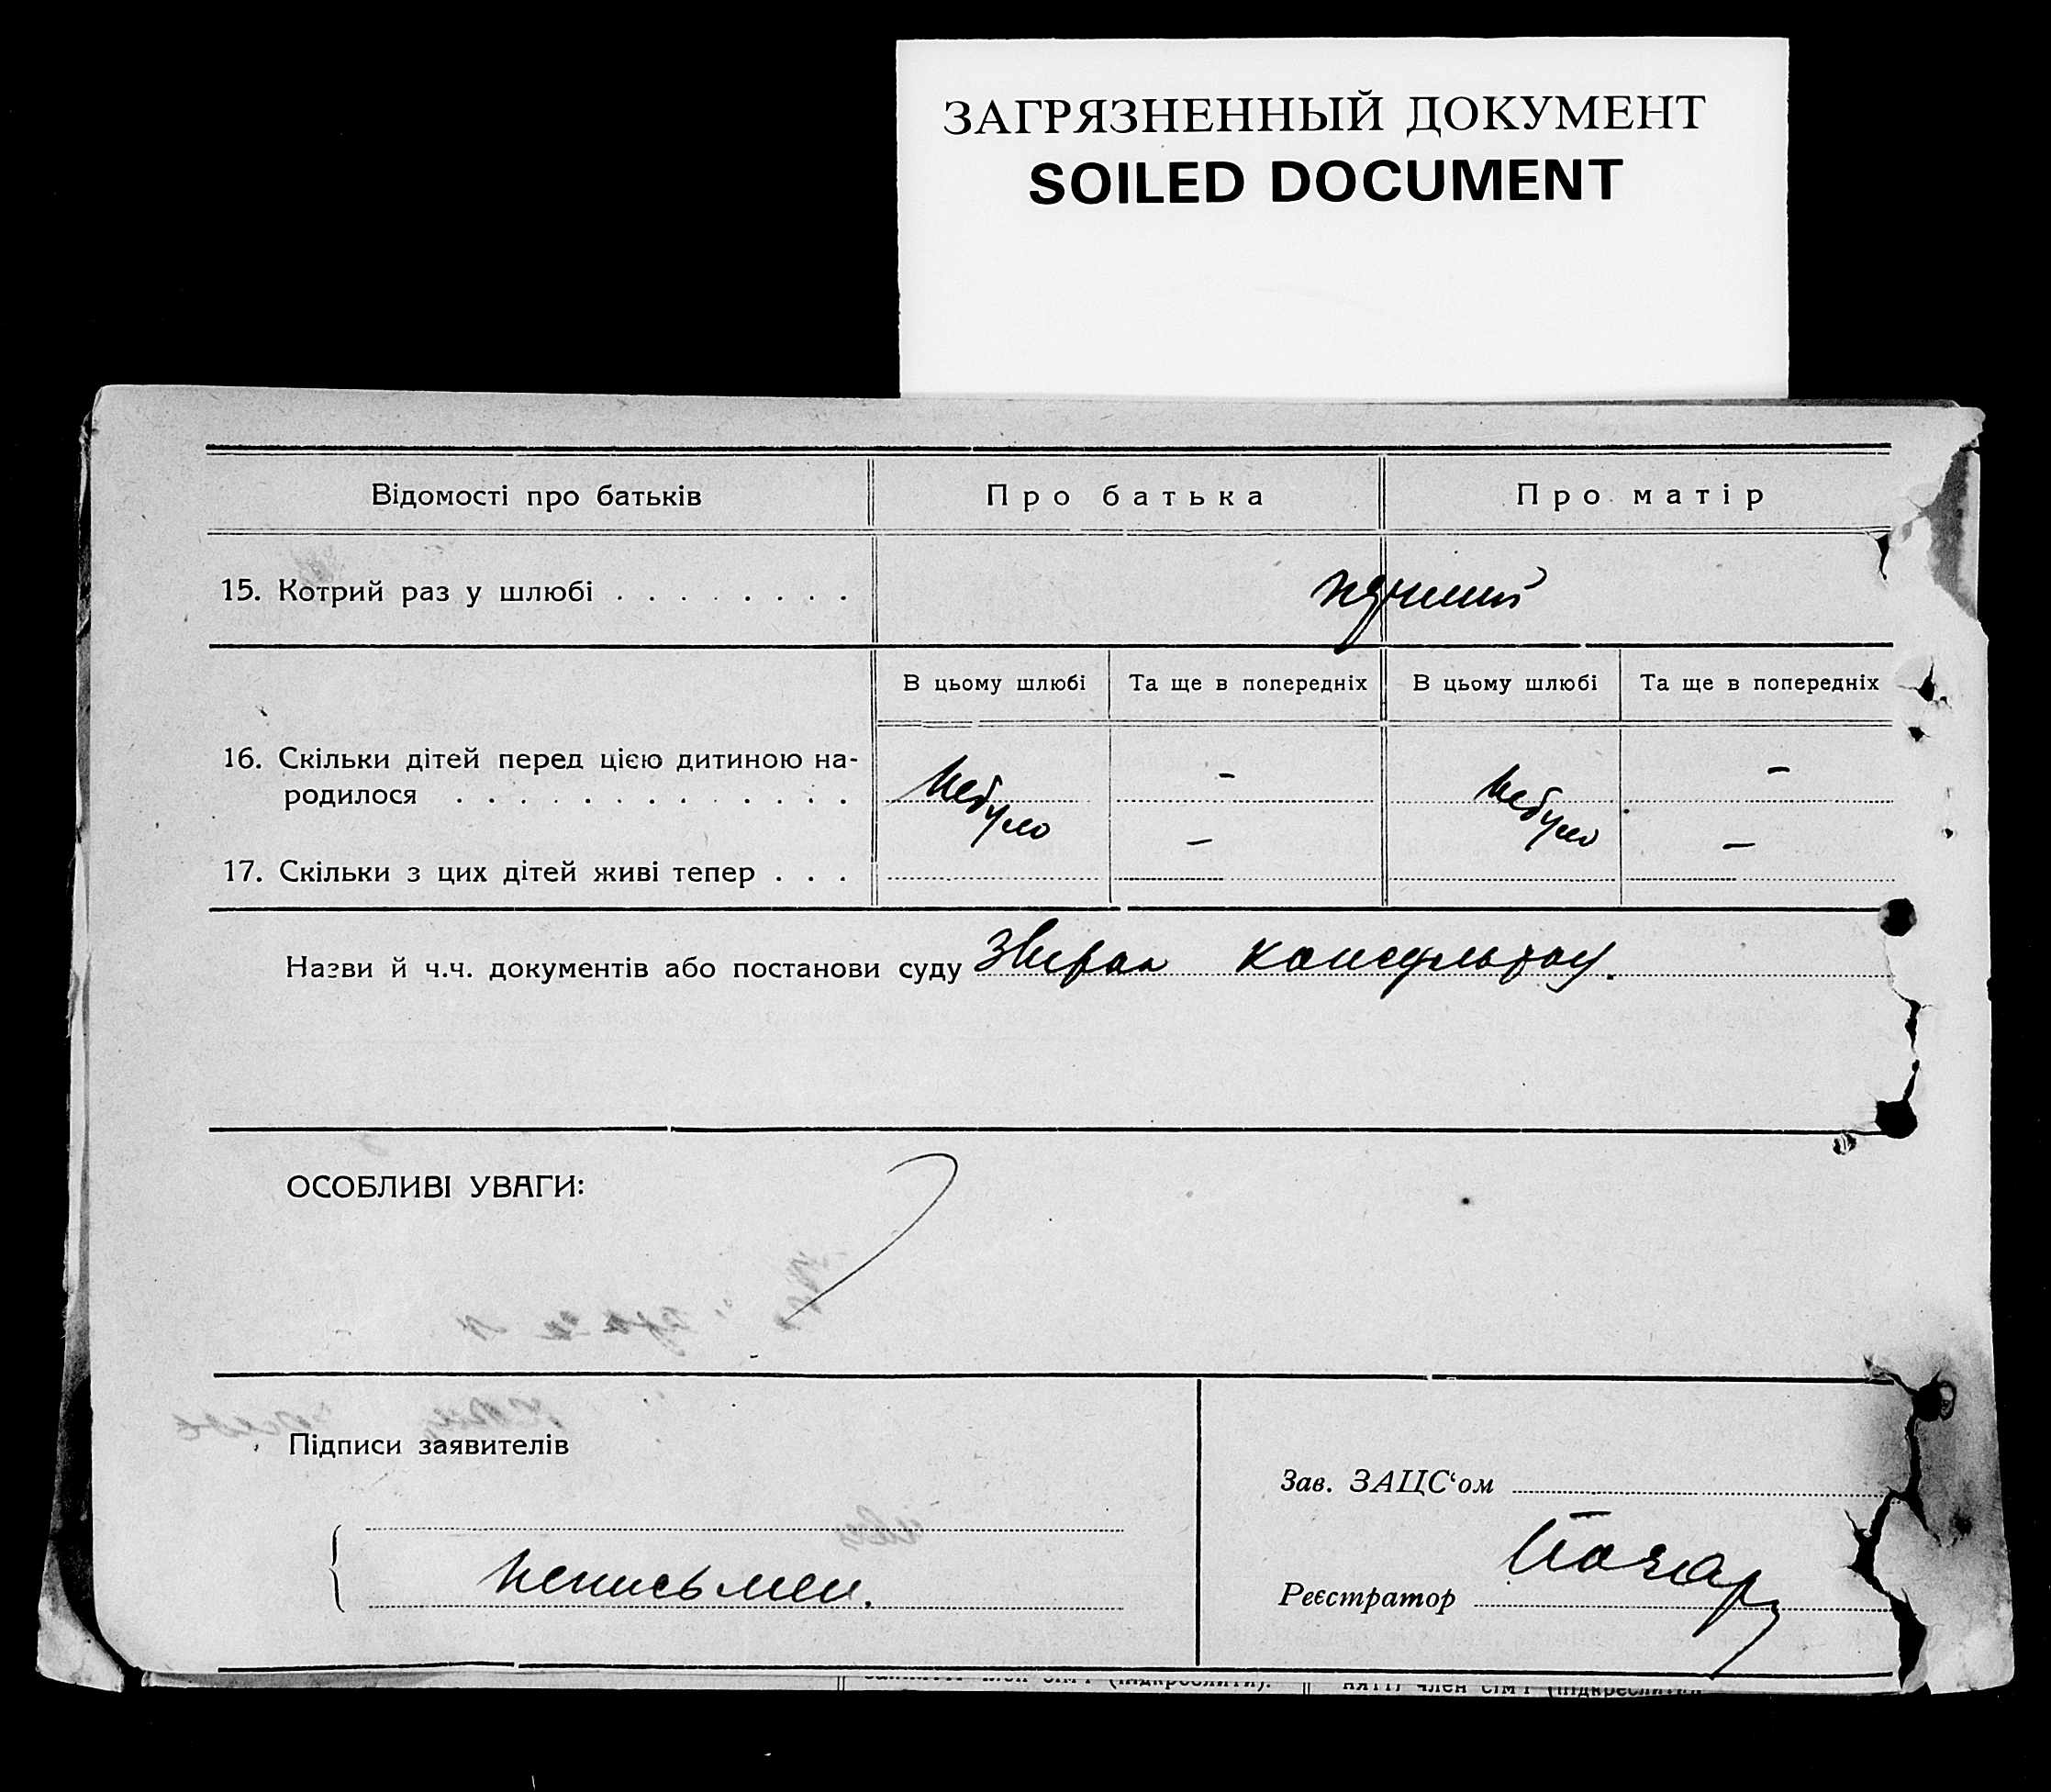 ЗАГРЯЗНЕННЫЙ ДОКУМЕНТ
SOILED DOCUMENT
Відомості про батьків Про батька Про матір
15. Котрий раз у шлюбі . . . . . . . . перший
В цьому шлюбі Та ще в попередніх В цьому шлюбі Та ще в попередніх
16. Скільки дітей перед цією дитиною на-
родилося . . . . . . . . . . . . . небуло - небуло -
17. Скільки з цих дітей живі тепер . . . - -
Назви й ч.ч. документів або постанови суду
ОСОБЛИВІ УВАГИ:
Підписи заявителів
Зав. ЗАЦС‘ом
неписьмен.
Реєстратор